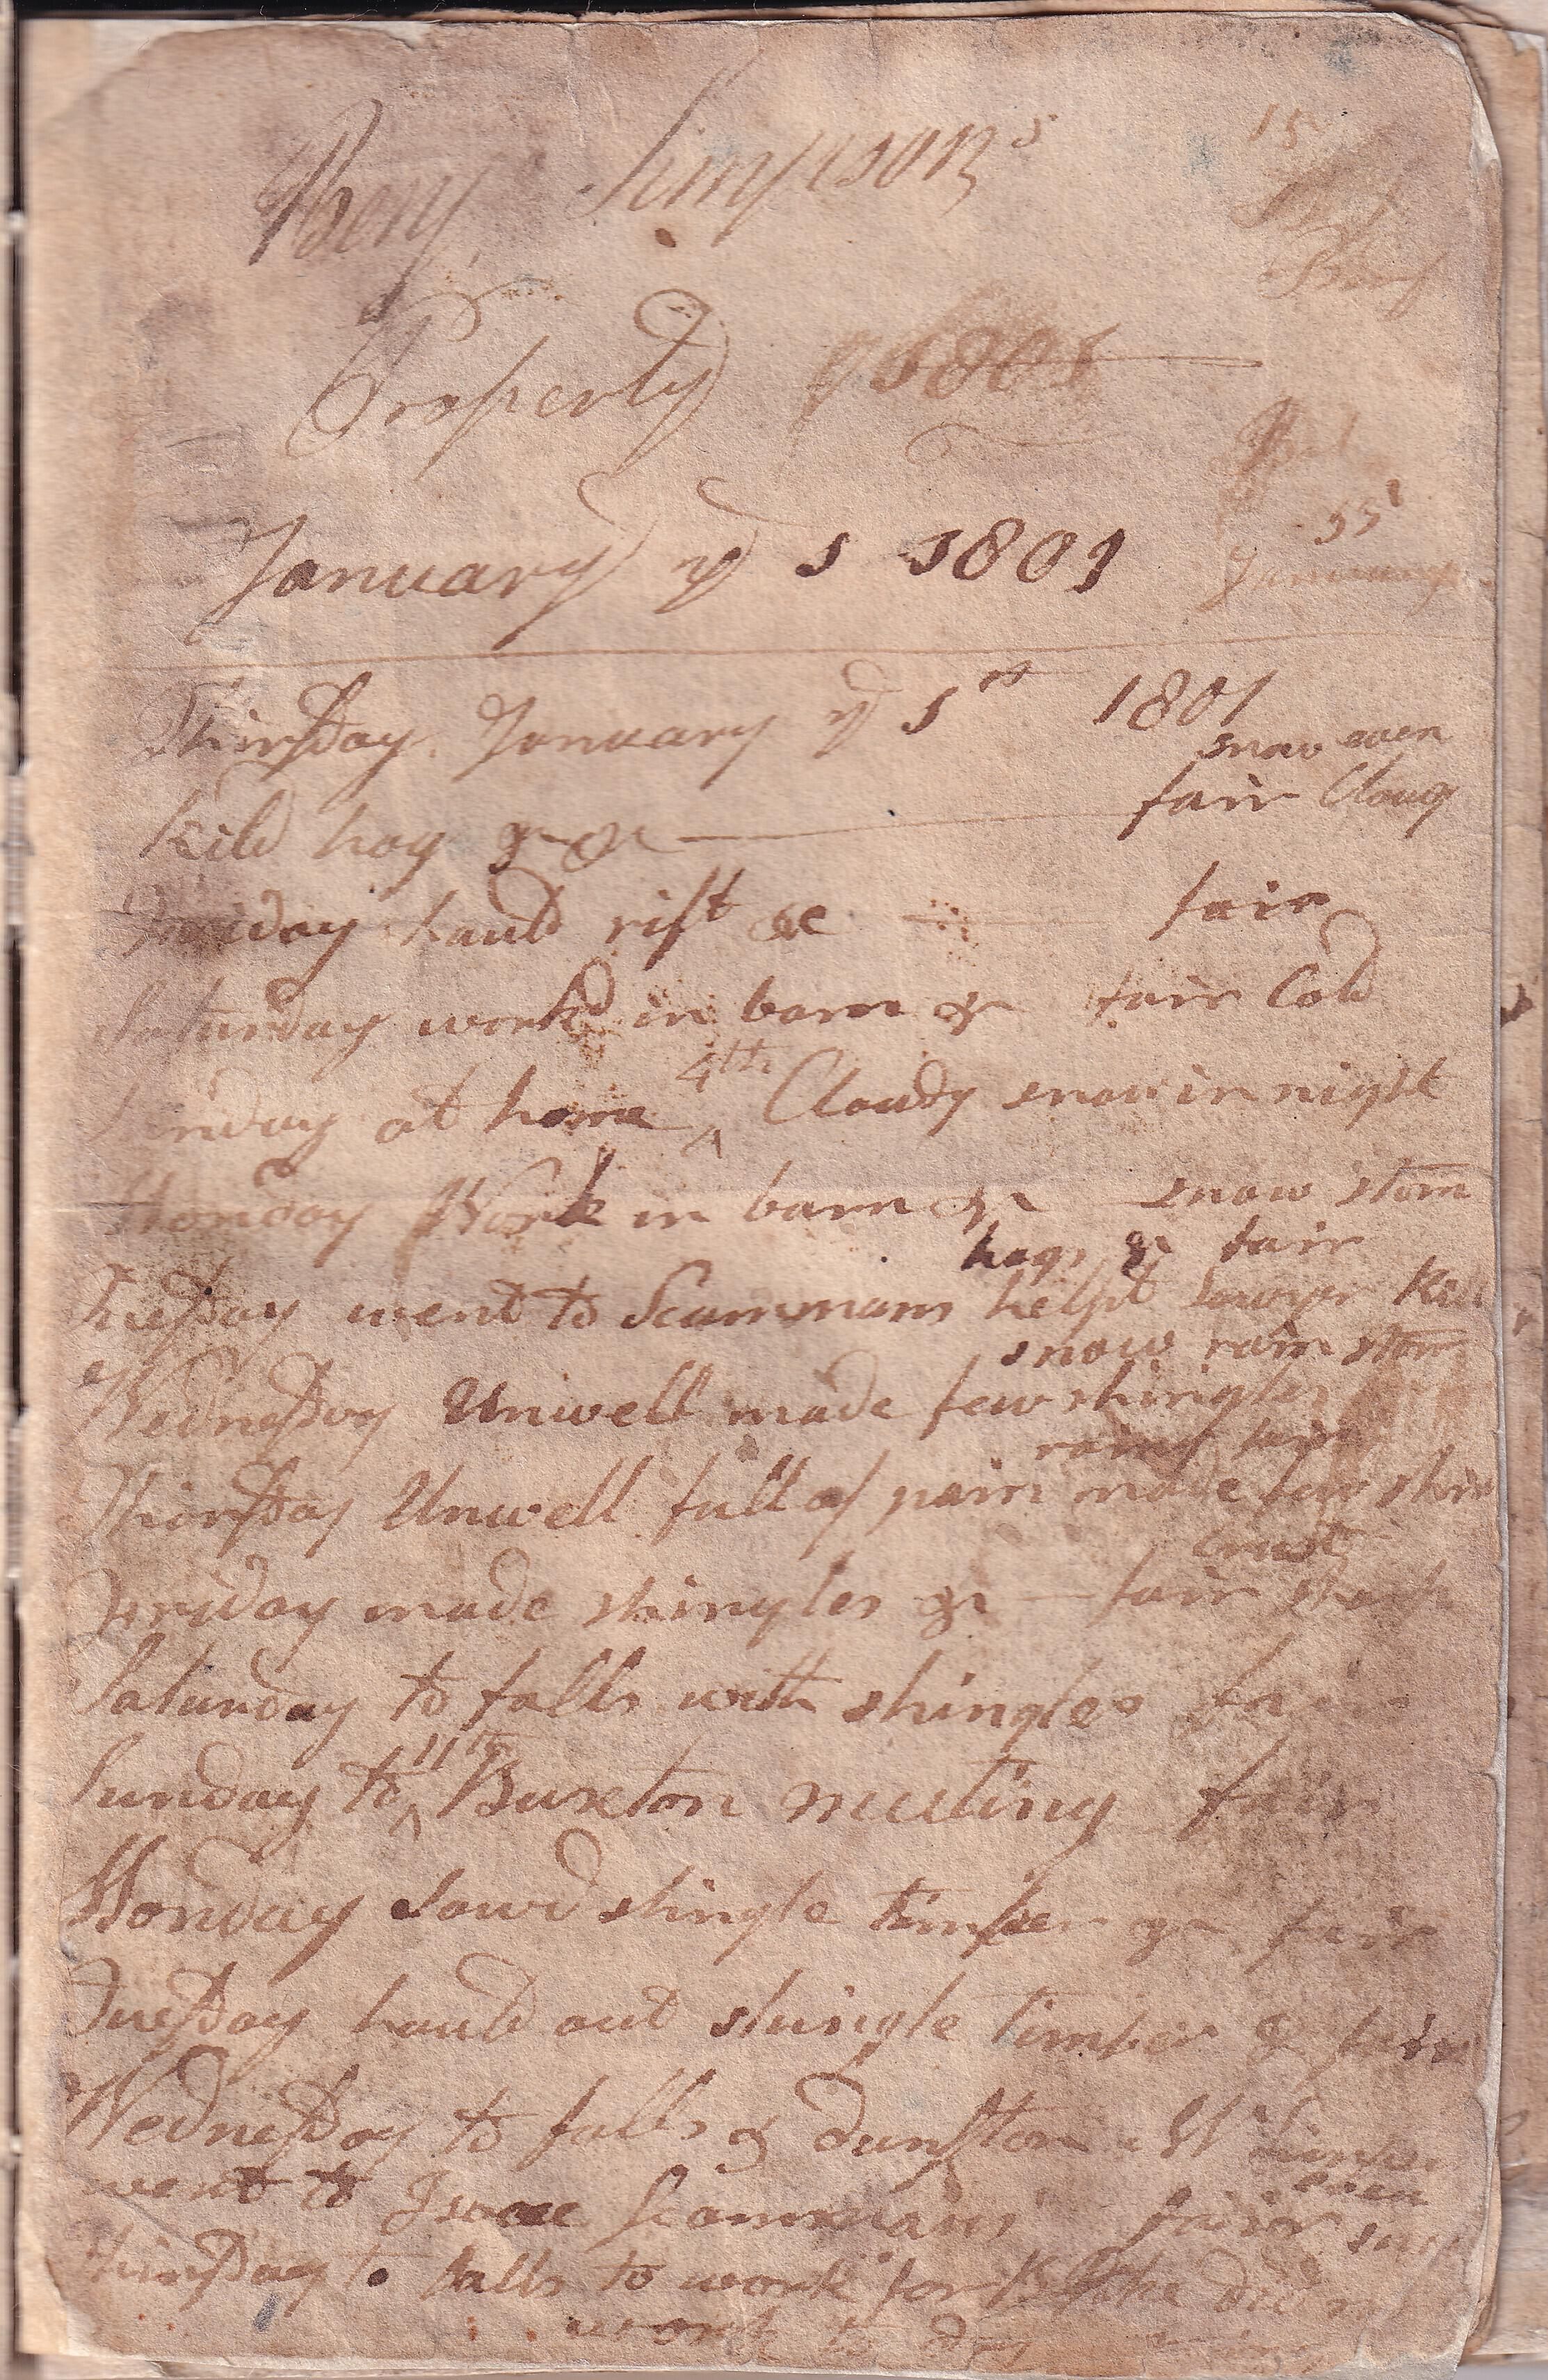 Benj Simpsons
15
Property 1801
January ye 1 1801
January
Thirsday January ye 1st 1801
snow even
Kild hog &c &c fair Cloug
Friday hauld rift &c fair
Saturday workd in barn &c fair Cold
Sunday at home 4th Cloudy snow in night
Monday Work in barn &c snow storm
hogs &c fair
Tuesday went to Scammans helpt sawyer Kill
snow rain storm
Wednesday Unwell made few shingles
rainy
Thirsday Unwell full of pain made few shin
crust
Friday made shingles &c fair
Saturday to falls with shingles fair
Sunday to 11th Buxton meeting fair
Monday sawd shingle timber &c fair
Tuesday hauld out shingle timber &c fair
Wednesday to falls & dunston W
even
went to Isaac Scammans fair
Thirsday to falls to work for he did
work to day